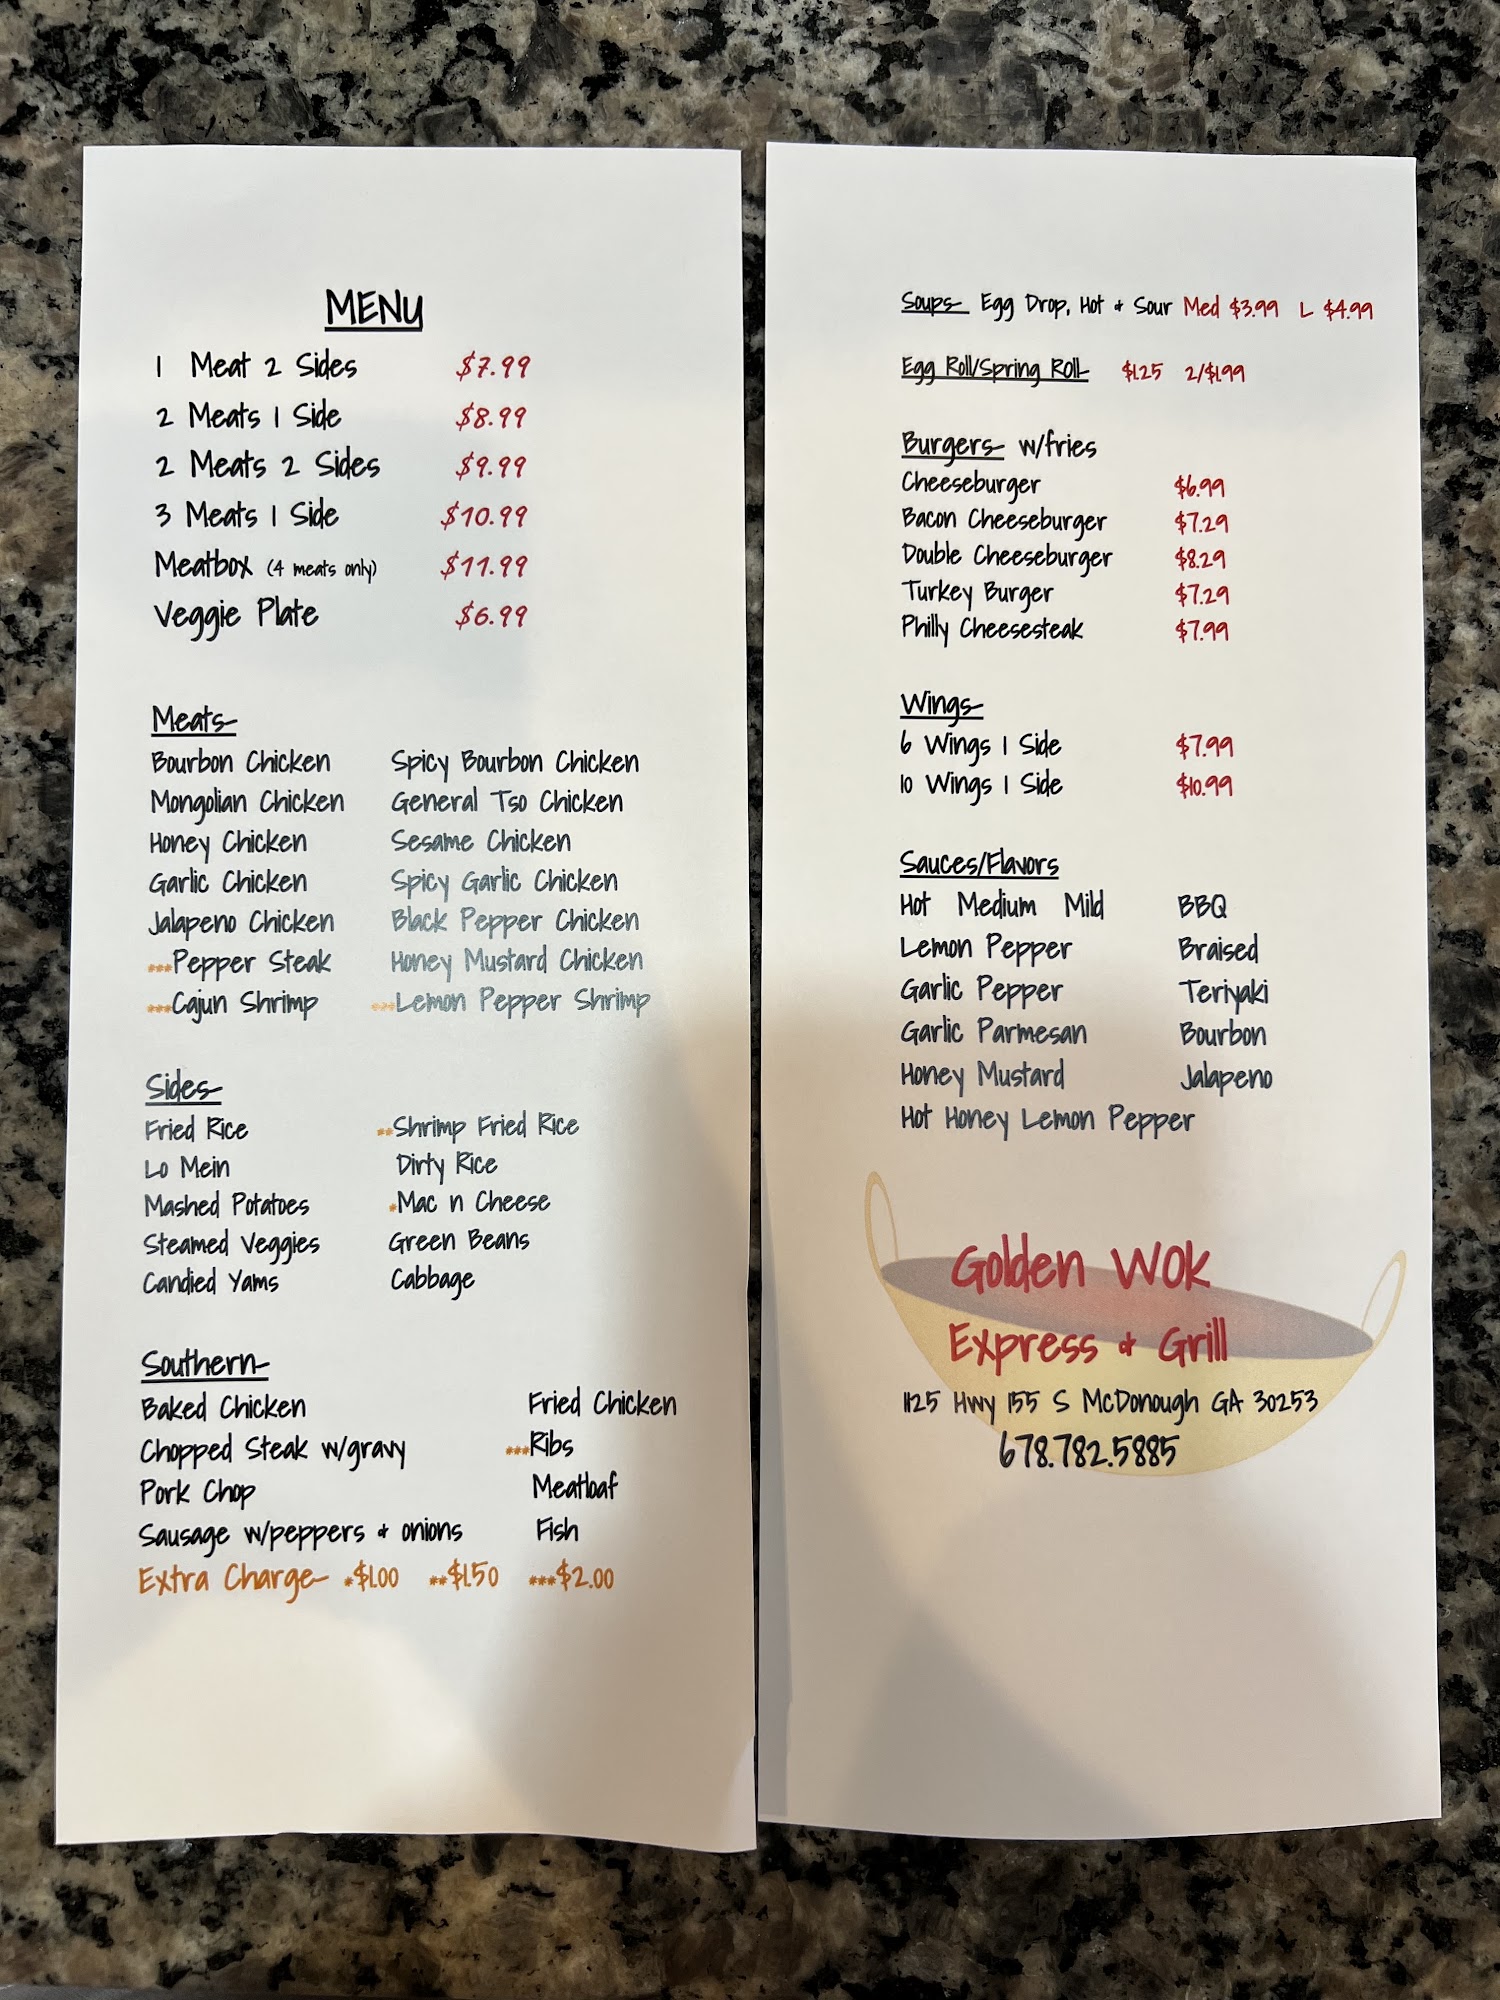 MENU
1 Meat 2 Sides $7.99
2 Meats 1 Side $8.99
2 Meats 2 Sides $9.99
3 Meats 1 Side $10.99
Meatbox (4 meats only) $11.99
Veggie Plate $6.99
Meats-
Bourbon Chicken Spicy Bourbon Chicken
Mongolian Chicken General Tso Chicken
Honey Chicken Sesame Chicken
Garlic Chicken Spicy Garlic Chicken
Jalapeno Chicken Black Pepper Chicken
***Pepper Steak Honey Mustard Chicken
***Cajun Shrimp ***Lemon Pepper Shrimp
Sides-
Fried Rice **Shrimp Fried Rice
Lo Mein Dirty Rice
Mashed Potatoes *Mac n Cheese
Steamed Veggies Green Beans
Candied Yams Cabbage
Southern-
Baked Chicken Fried Chicken
Chopped Steak w/gravy ***Ribs
Pork Chop Meatloaf
Sausage w/peppers & onions Fish
Extra Charge- *$1.00 **$1.50 ***$2.00
Soups- Egg Drop, Hot & Sour Med $3.99 L $4.99
Egg Roll/Spring Roll- $1.25 2/$1.99
Burgers- w/fries
Cheeseburger $6.99
Bacon Cheeseburger $7.29
Double Cheeseburger $8.29
Turkey Burger $7.29
Philly Cheesesteak $7.99
Wings-
6 Wings 1 Side $7.99
10 Wings 1 Side $10.99
Sauces/Flavors
Hot Medium Mild BBQ
Lemon Pepper Braised
Garlic Pepper Teriyaki
Garlic Parmesan Bourbon
Honey Mustard Jalapeno
Hot Honey Lemon Pepper
Golden Wok
Express & Grill
1125 Hwy 155 S McDonough GA 30253
678.782.5885